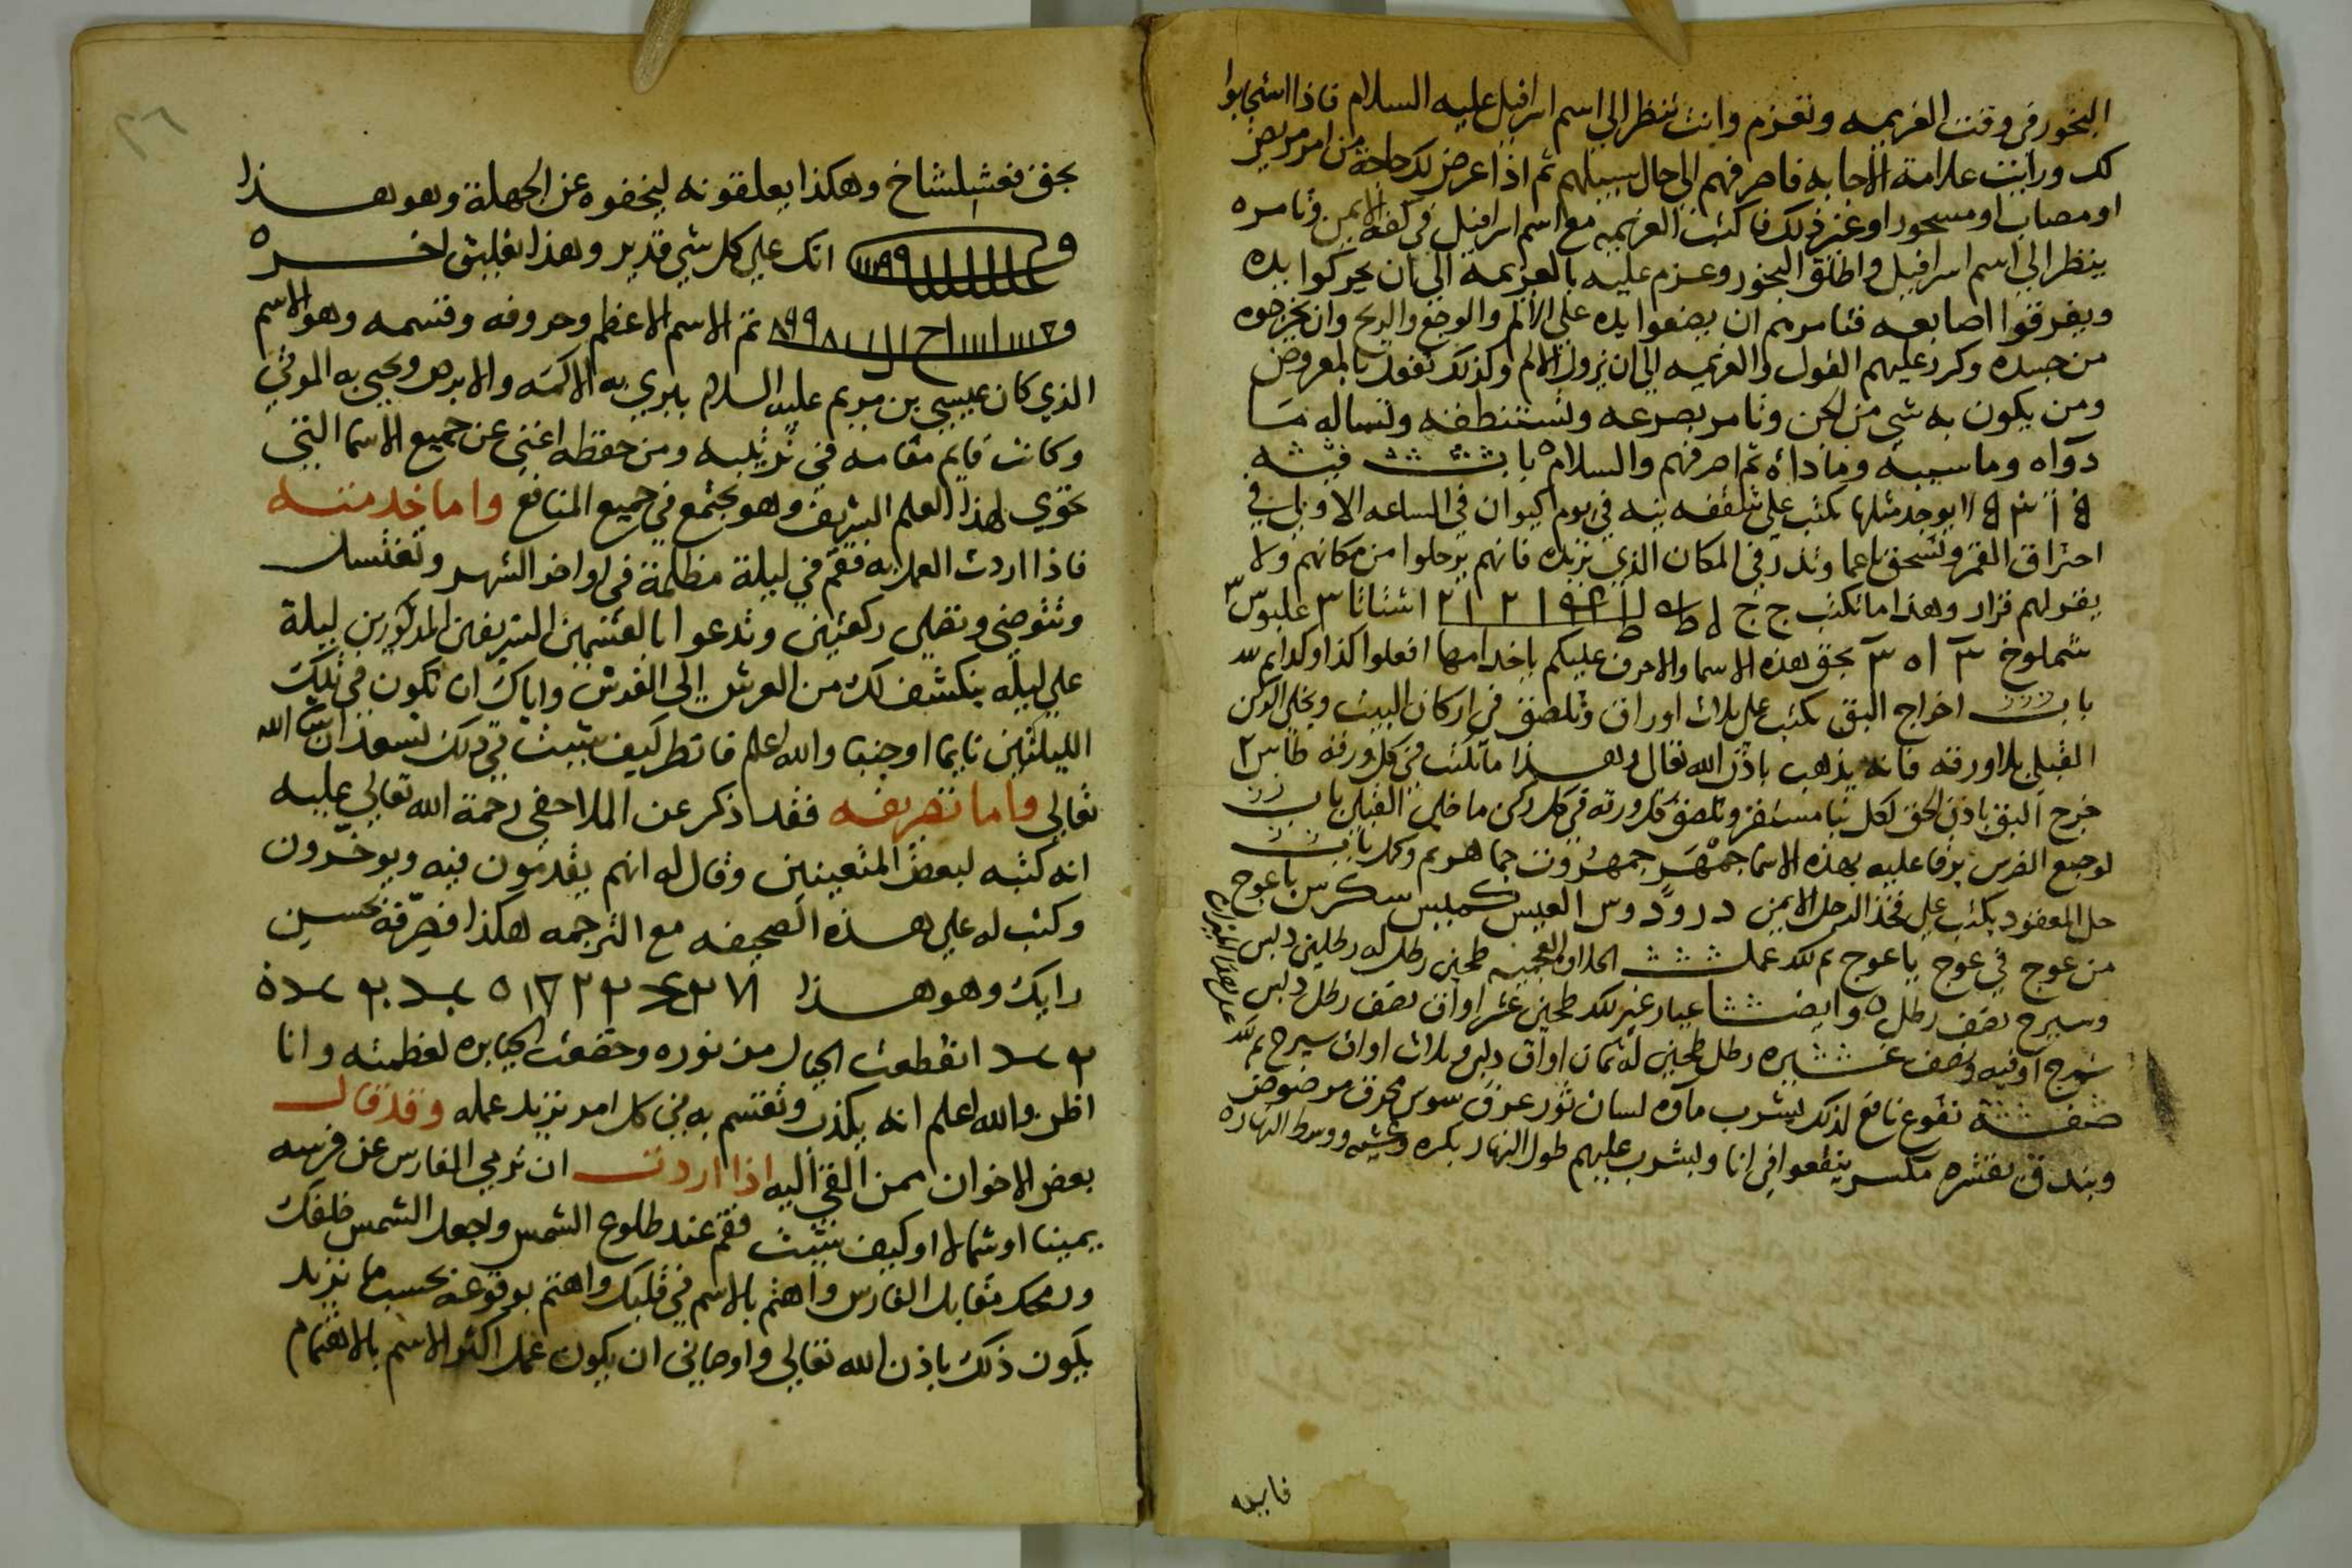 البخور في وقت العزيمه وتعزم وانت تنظر الي اسم اسرافيل عليه السلام فاذا استجابوا
لك ورايت علامة الاجابه فاصرفهم الي حال سبيلهم ثم اذا عرض لك حاجة من امر مريض
او مصاب او مسحور او غير ذلك فاكتب العزيمه مع اسم اسرافيل في كفه الايمن وتامره
ينظر الي اسم اسرافيل واطلق البخور وعزم عليه بالعزيمة الي ان يحركوا يده
ويفرقوا اصابعه فتامرهم ان يضعوا يده علي الالم والوجع والريح وان يخرجوه
من جسده وكرر عليهم القول والعزيمه الي ان يزول الالم وكذلك تفعل بالمعروض
ومن يكون به شي من الجن وتامر بصرعه وتستنطقه وتساله ما
دواه وما سببه وما داه ثم اصرفهم والسلام باب
لا يوجد مثلها تكتب علي شقفه نيه في يوم كيوان في الساعه الاولي في
احتراق القمر وتسحق ناعما وتذر في المكان الذي تريده فانهم يرحلوا من مكانهم ولا
يقر لهم قرار وهذا ما تكتب ج ج
شملوخ بحق هذه الاسما والاحرف عليكم ياخدامها افعلوا كذا وكذا
باب اخراج البق تكتب علي ثلاث اوراق وتلصق في اركان البيت ويخلي الركن
القبلي بلا ورقه فانه يذهب باذن الله تعالي وهذا ما تكتب في كل ورقه
خرج البق باذن الحق لكل نبا مستقر وتلصق كل ورقه في كل ركن ما خلي القبلي باب
لوجع الضرس يرقا عليه بهذه الاسما جمهر جمهرون جماهرم باب
حل المعقود يكتب علي فخذ الرجل الايمن
من عوج في عوج ياعوج طحين رطل له رطلين دبس
وسيرج نصف رطل وايضا عيار غير ذلك طحين عشر اواق نصف رطل دبس
سيرج اوقيه ونصف غيره رطل طحين له ثمان اواق دبس وثلاث اواق سيرج
صفة نقوع نافع لذلك يشرب ماؤه لسان ثور عرق سوس مجرف مرضوض
وبندق بقشره مكسر ينقعوا في انا ويشرب عليهم طول النهار بكره وعشيه ووسط النهار
فايده
بحق نعشلشاخ وهكذا يعلقونه ليخفوه عن الجهلة وهو هذا
انك علي كل شي قدير وهذا تعليق اخره
تم الاسم الاعظم وحروفه وقسمه وهو الاسم
الذي كان عيسي بن مريم عليه السلام يبري به الاكمه والابرص ويحيي به الموتي
وكانت قايم مقامه في تربيه ومن حفظه اغني عن جميع الاسما التي
تحوي لهذا العلم الشريف وهو يجتمع في جميع المنافع واما خدمته
فاذا اردت العمل به فقم في ليلة مظلمة في اواخر الشهر وتغتسل
وتتوضي وتصلي ركعتين وتدعوا بالقسمين الشريفين المذكورين ليلة
علي ليله ينكشف لك من العرش الي الفرش واياك ان تكون في تلك
الليلتين نايما او جنبا والله اعلم فانظر كيف تثبت في ذلك تسعد ان شا الله
تعالي واما تصريفه فقد ذكر عن الملا حفي رحمة الله تعالي عليه
انه كتبه لبعض المتعينين وقال له انهم يقدمون فيه ويوخرون
وكتب له علي هذه الصحيفه مع الترجمه هكذا فصرفه بحسين
رايك وهو هذا
انقطعت الجبال من نوره وخضعت الجبابره لعظمته وانا
اظن والله اعلم انه يكذب وتقسم به في كل امر تريد عمله وقد قال
بعض الاخوان ممن القي اليه اذا اردت ان ترمي الفارس عن فرسه
يمينا او شمالا او كيف شيت فقم عند طلوع الشمس واجعل الشمس خلفك
ورمحك مقابل الفارس واهتم بالاسم في قلبك واهتم بوقوعه بحسب ما تريد
يكون ذلك باذن الله تعالي واوصاني ان يكون عمل اكثر الاسم بالاهتمام